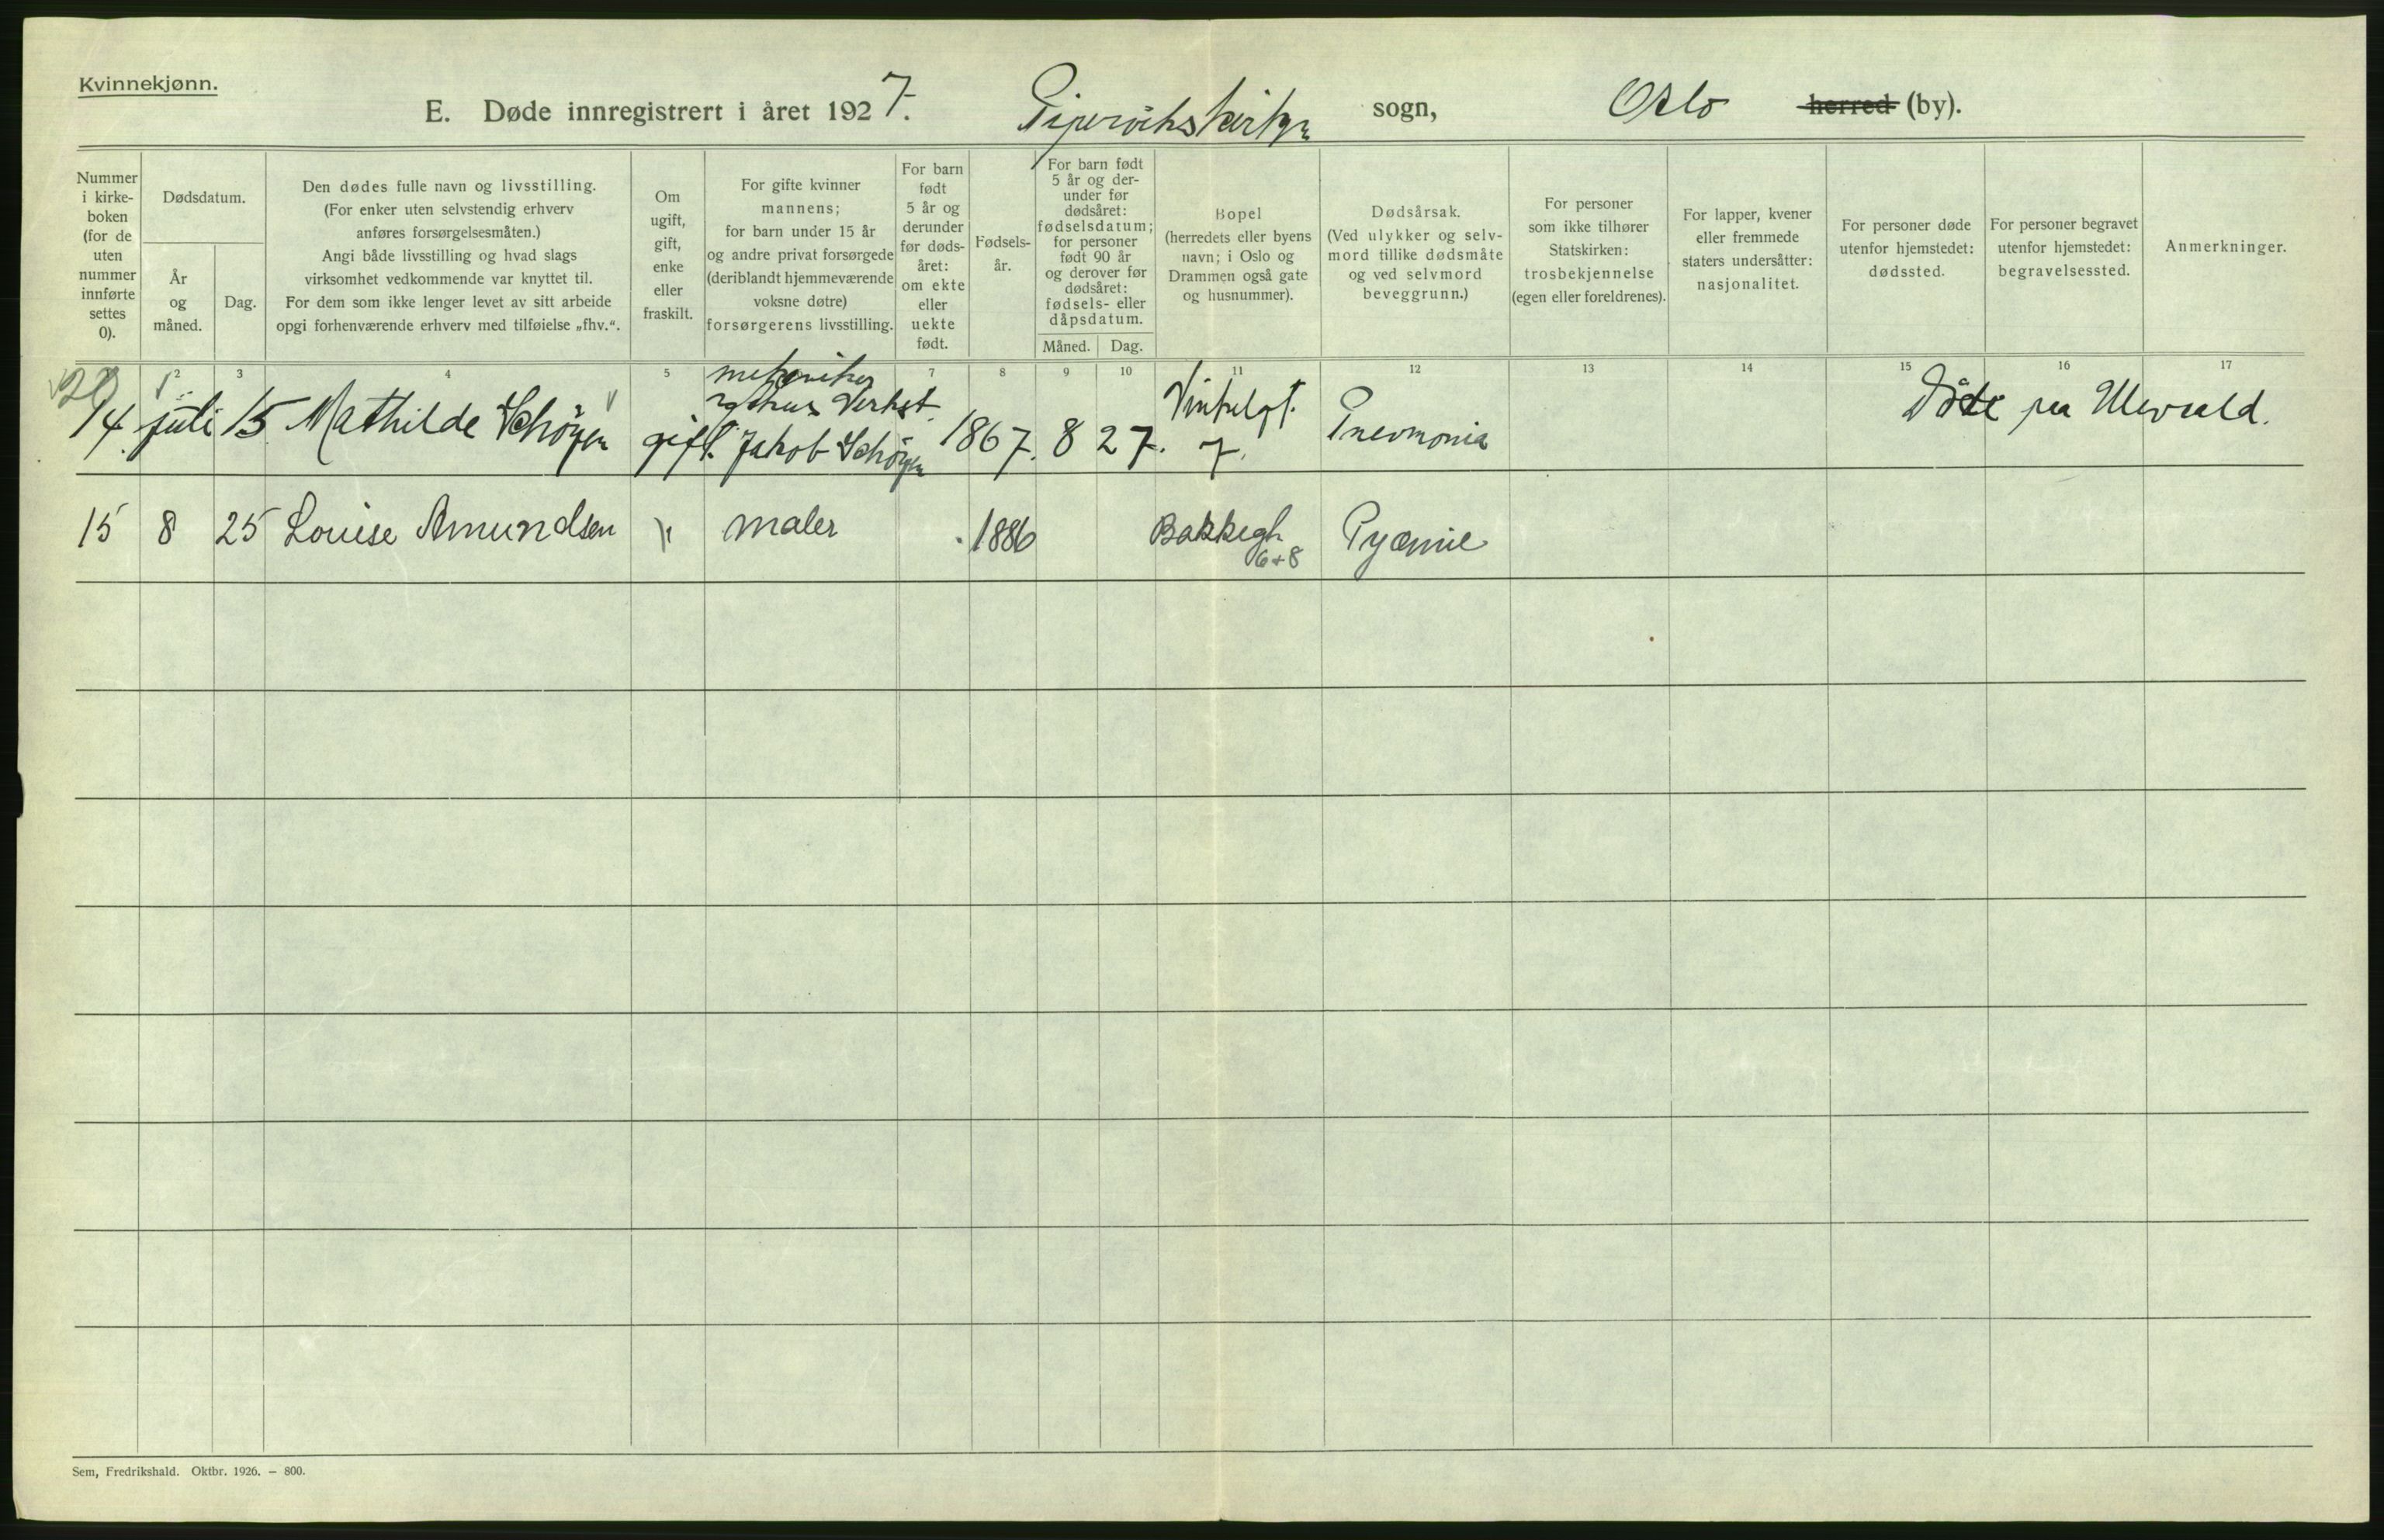 Kvinnekjønn.
E. Døde innregistrert i året 1927. Pipervikskirken sogn, Oslo herred (by).
Nummer
i kirke-
boken
(for de
uten
nummer
innførte
settes
0).
Dødsdatum.
År
og
måned.
Dag.
Den dødes fulle navn og livsstilling.
(For enker uten selvstendig erhverv
anføres forsørgelsesmåten.)
Angi både livsstilling og hvad slags
virksomhet vedkommende var knyttet til.
For dem som ikke lenger levet av sitt arbeide
opgi forhenværende erhverv med tilføielse „fhv.“.
Om
ugift,
gift,
enke
eller
fraskilt.
For gifte kvinner
mannens;
for barn under 15 år
og andre privat forsørgede
(deriblandt hjemmeværende
voksne døtre)
forsørgerens livsstilling.
For barn
født
5 år og
derunder
før døds-
året:
om ekte
eller
uekte
født.
Fødsels-
år.
For barn født
5 år og der-
under før
dødsåret:
fødselsdatum;
for personer
født 90 år
og derover før
dødsåret:
fødsels- eller
dåpsdatum.
Måned. Dag.
Bopel
(herredets eller byens
navn; i Oslo og
Drammen også gate
og husnummer).
Dødsårsak.
(Ved ulykker og selv-
mord tillike dødsmåte
og ved selvmord
beveggrunn.)
For personer
som ikke tilhører
Statskirken:
trosbekjennelse
(egen eller foreldrenes).
For lapper, kvener
eller fremmede
staters undersåtter:
nasjonalitet.
For personer døde
utenfor hjemstedet:
dødssted.
For personer begravet
utenfor hjemstedet:
begravelsessted.
Anmerkninger.
2 3 4 5 7 8 9 10 11 12 13 14 15 16 17
mekaniker
Verkst.
14. juli 15 Mathilde Schøyen gift. Jakob Schøyen 1867. 8 27. Vinkelgt. 7. Pnevmonia Døde paa Ulevaald.
15 8 25 Louise Amundsen maler 1886 Bakkegt. 6+8 Pyæmie
Sem, Fredrikshald. Oktbr. 1926. – 800.